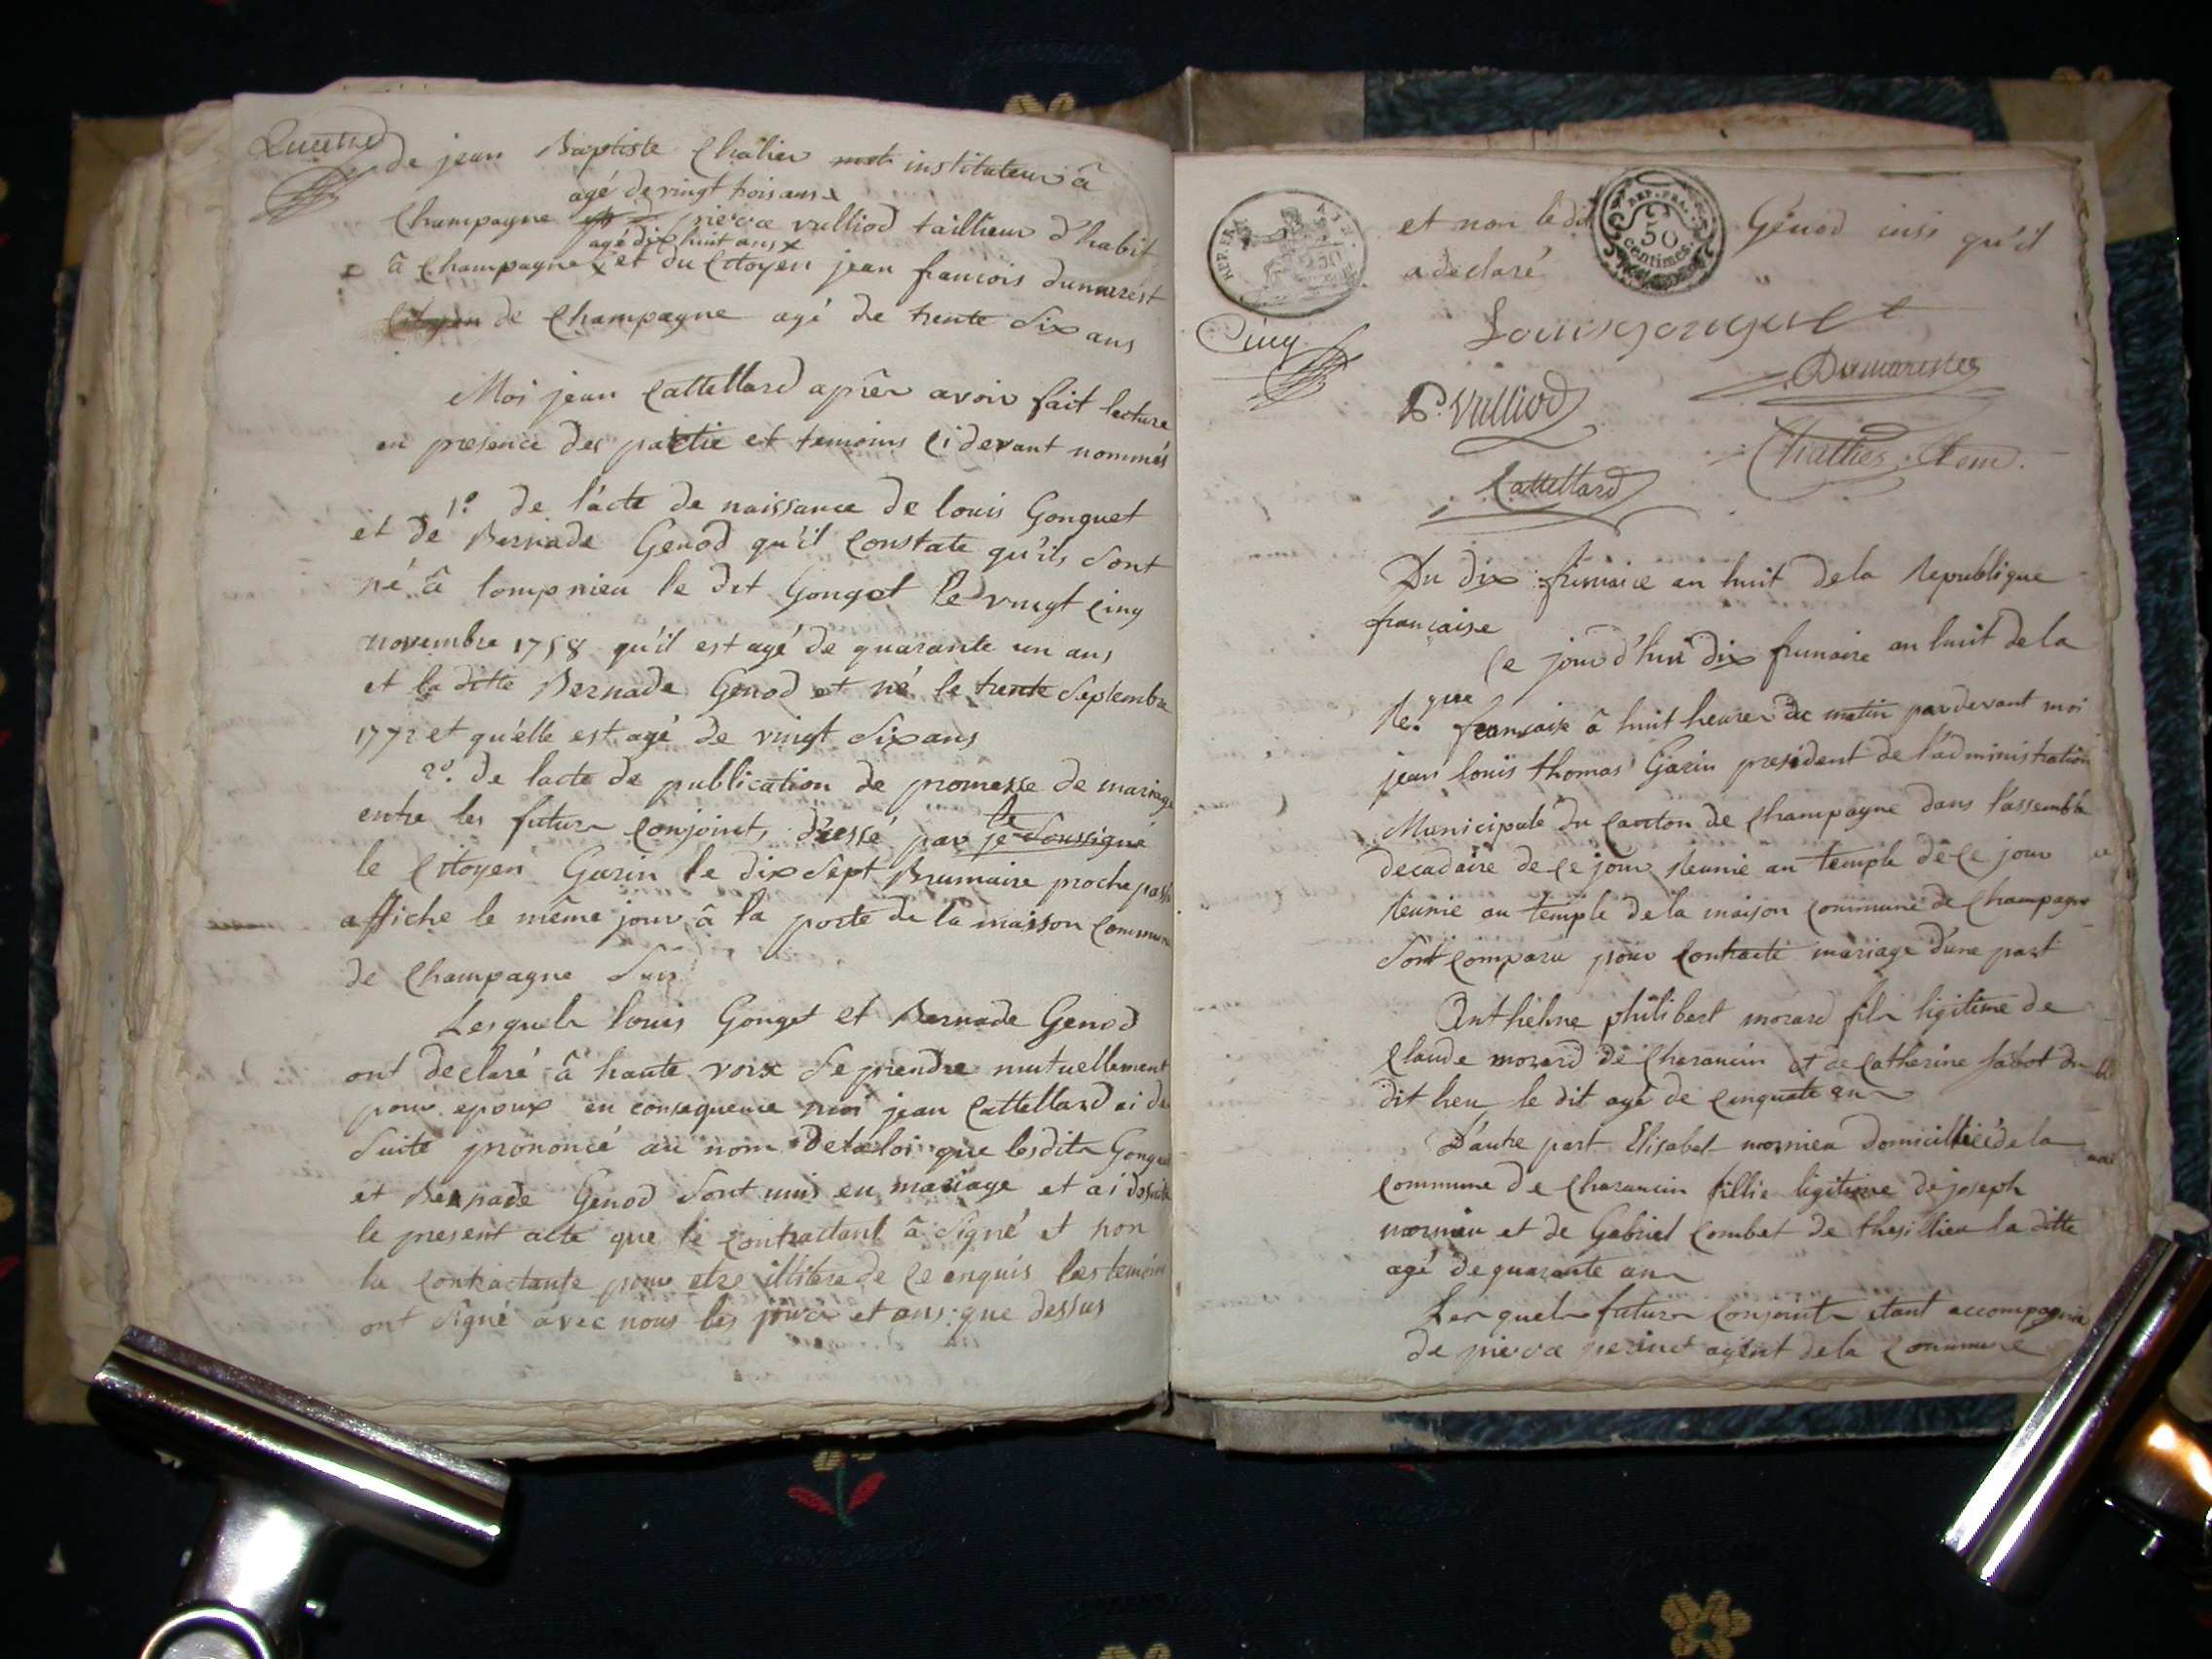 de jean Baptiste Chalier instituteur â
agé de vingt trois ans x
Champagne pierre vulliod taillieur d'habit
agé dix huit ans x
â Champagne et du Citoyen jean francois dumarest
Citoyen de Champagne agé de trente Six ans
Moi jean Cattelland aprèr avoir fait lecture
en presence der partie et temoins Ci devant nommés
1º de l'acte de naissance de louis Gonguet
et de Bernade Genod qu'il Constate qu'ils Sont
né â lompnieu le dit Gonget le vingt Cinq
novembre 1758 qu'il est agé de quarante un ans
et la ditte Bernade Genod et né le trente Septembre
1772 et qu'elle est agé de vingt Six ans
2º. de lacte de publication de promesse de mariage
entre les futur Conjoints dressé par je Soussigné
le
le Citoyen Garin le dix Sept Brumaire proche passé
affiche le même jour â la porte de la maison Commune
de Champagne
Lesquels louis Gonget et Bernade Genod
ont declaré â haute voix Se prendre mutuellement
pour epoux en consequence moi jean Cattelland ai de
Suite prononcé au nom de la loi que lesdits Gonguet
et Bernade Genod Sont unis en mariage et ai
le present acte que le Contractant â Signé et non
la Contractante pour etre illitere de Ce enquis les temoins
ont Signé avec nous les jour et ans que dessus
et non le dit Génod insi qu'il
REP. FRA.
50
centimes
a declaré
Cinq
Louis gonguet
Dumarest
P. Vulliod
Challier
Cattelland
Du dix frimaire an huit de la Republique
francaise
Ce jour d'hui dix frimaire an huit de la
Re.que francaise â huit heures du matin par devant moi
jean louis thomas Garin president de l'administration
Municipale du Canton de Champagne dans l'assemblé
decadaire de Ce jour Reunie au temple de Ce jour
Reunie au temple de la maison Commune de Champagne
Sont Comparu pour Contracté mariage d'une part
Anthelme philibert morard fils ligitime de
Claude morard de Charancin et de Catherine Sabot du
dit lieu le dit agé de Cinquate ans
D'autre part Elisabet mornieu domicilliée de la
Commune de Charancin fillie ligitime de joseph
mornieu et de Gabriel Combet de thesillieu la ditte
agé de quarante ans
Lesquels futur Conjoints etant accompagnié
de pierre perinet agent de la Commune